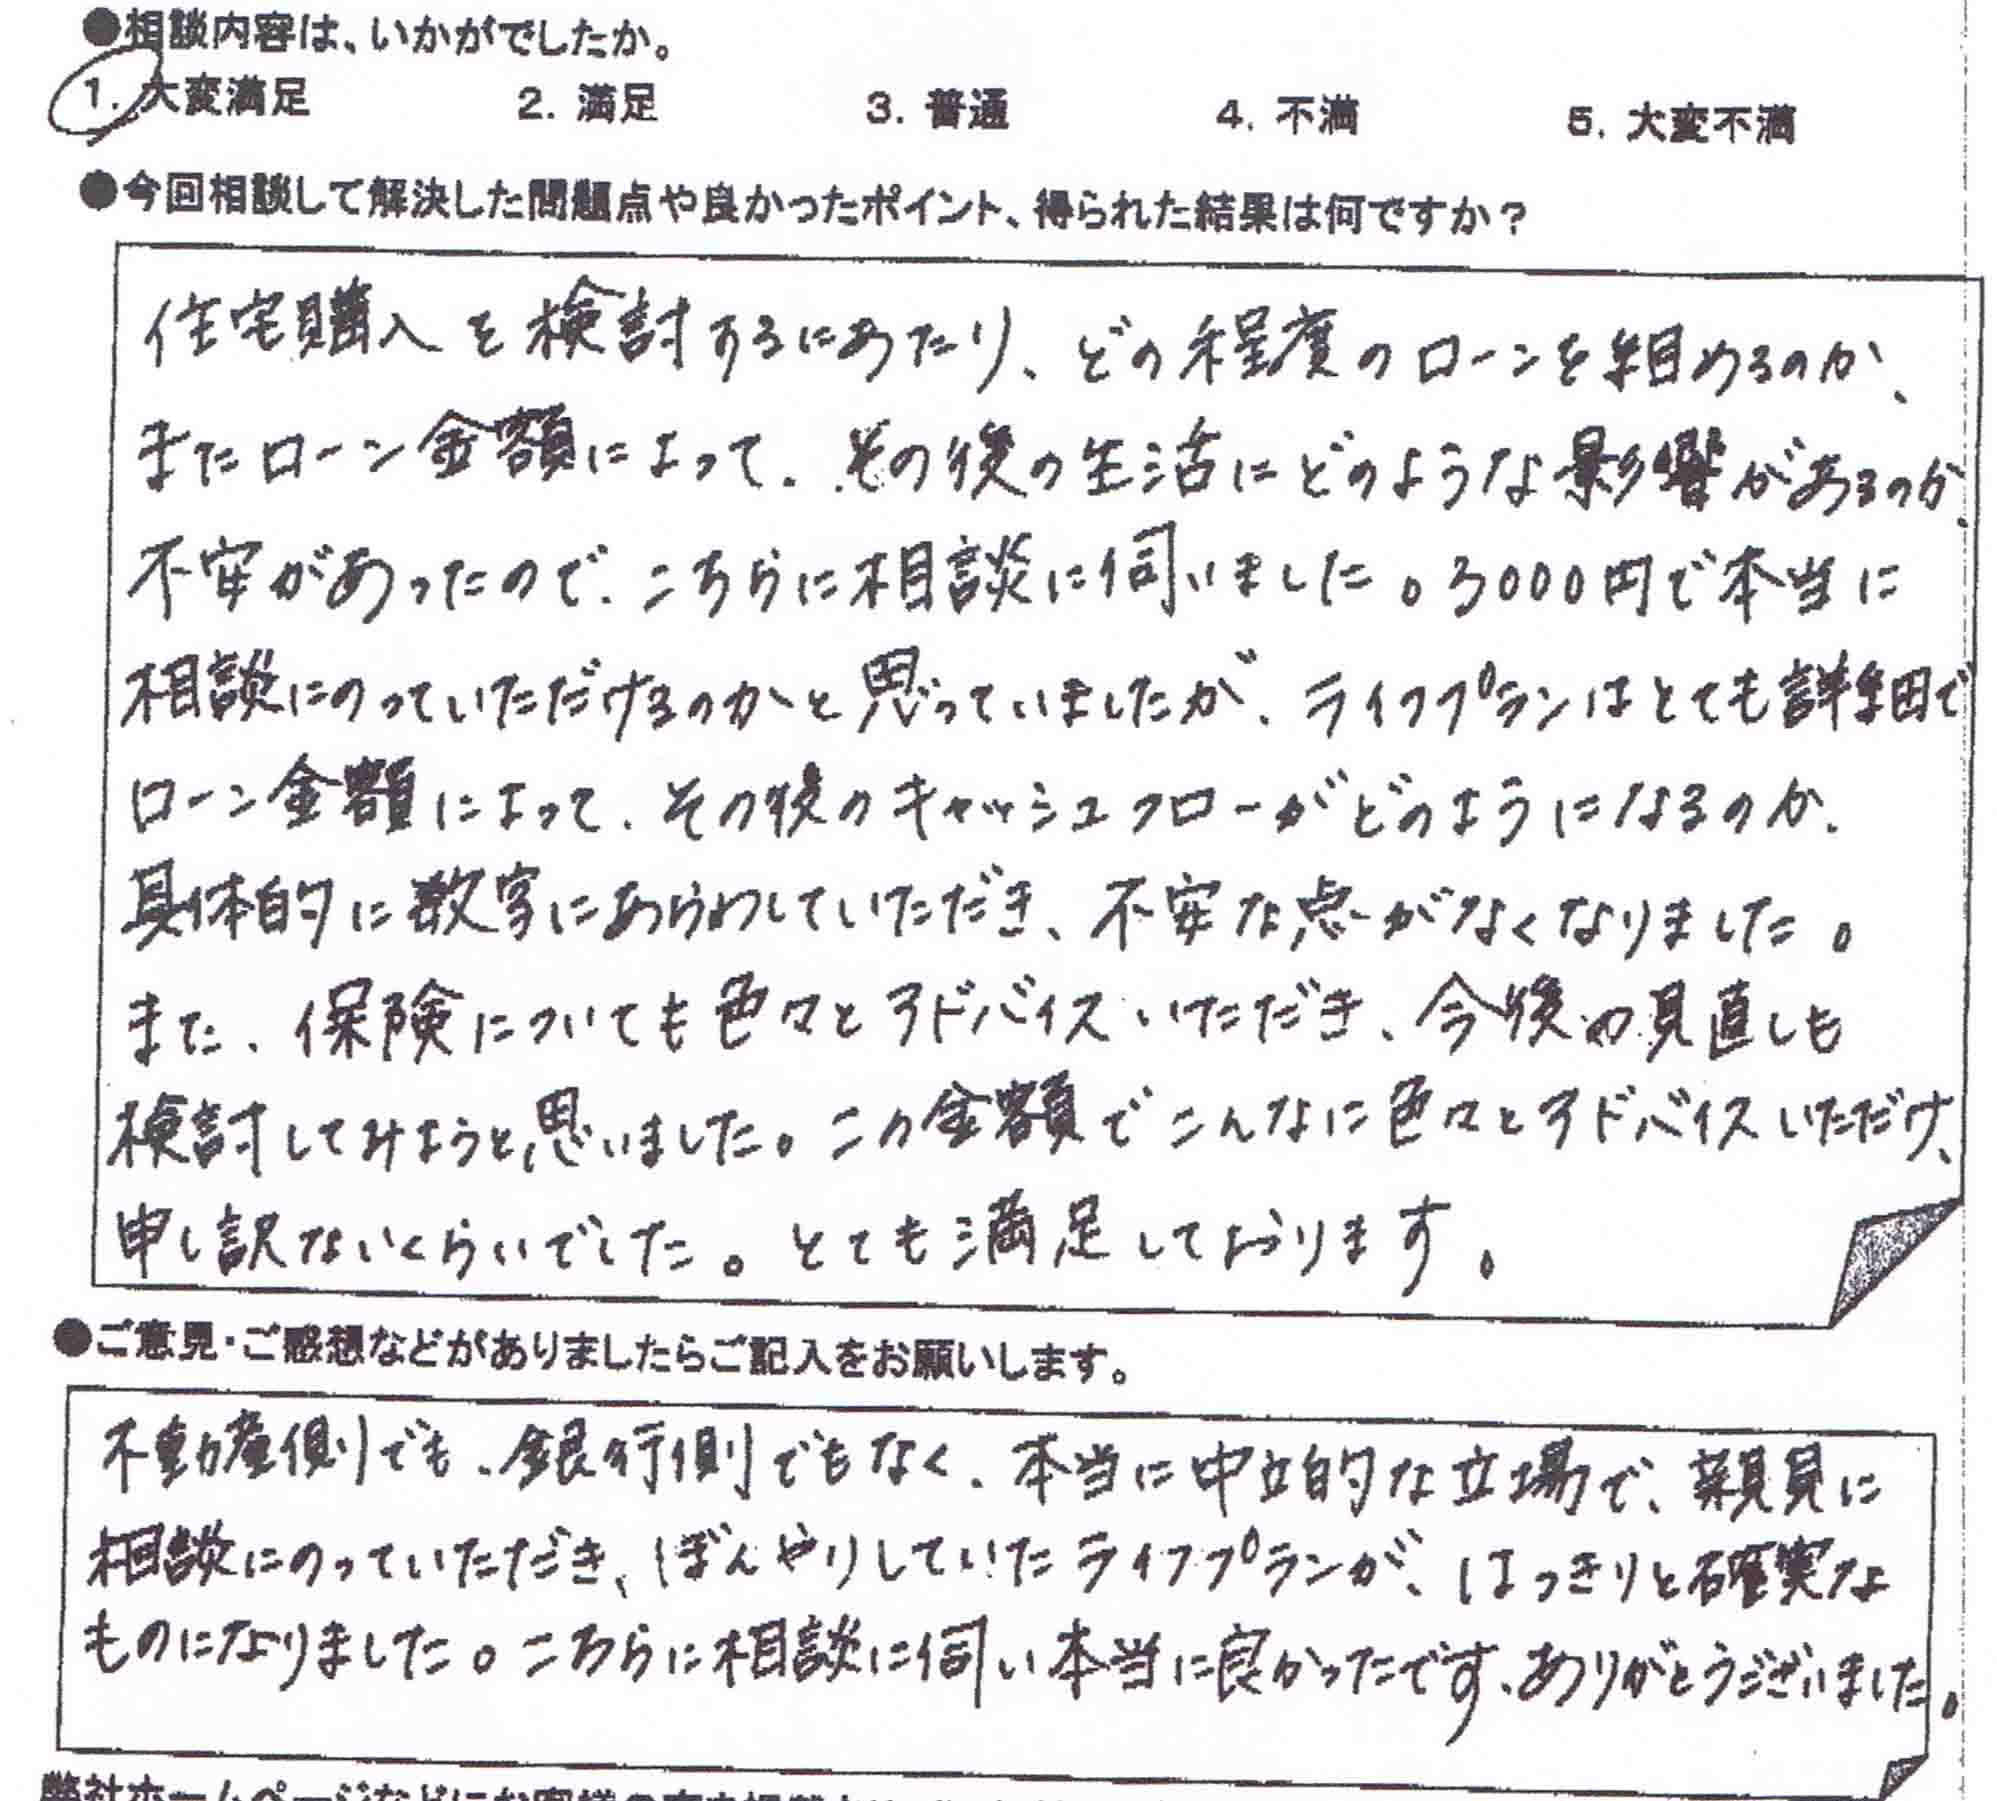 ●相談内容は、いかがでしたか。
1. 大変満足 2. 満足 3. 普通 4. 不満 5. 大変不満
●今回相談して解決した問題点や良かったポイント、得られた結果は何ですか？
住宅購入を検討するにあたり、どの程度のローンを組めるのか、
またローン金額によって、その後の生活にどのような影響があるのか、
不安があったので、こちらに相談に伺いました。3000円で本当に
相談にのっていただけるのかと思っていましたが、ライフプランはとても詳細で
ローン金額によって、その後のキャッシュフローがどのようになるのか、
具体的に数字にあらわしていただき、不安な点がなくなりました。
また、保険についても色々とアドバイスいただき、今後の見直しも
検討してみようと思いました。この金額でこんなに色々とアドバイスいただけ、
申し訳ないくらいでした。とても満足しております。
●ご意見・ご感想などがありましたらご記入をお願いします。
不動産側でも、銀行側でもなく、本当に中立的な立場で、親身に
相談にのっていただき、ぼんやりしていたライフプランが、はっきりと確実な
ものになりました。こちらに相談に伺い本当に良かったです、ありがとうございました。
弊社ホームページなどにお客様の